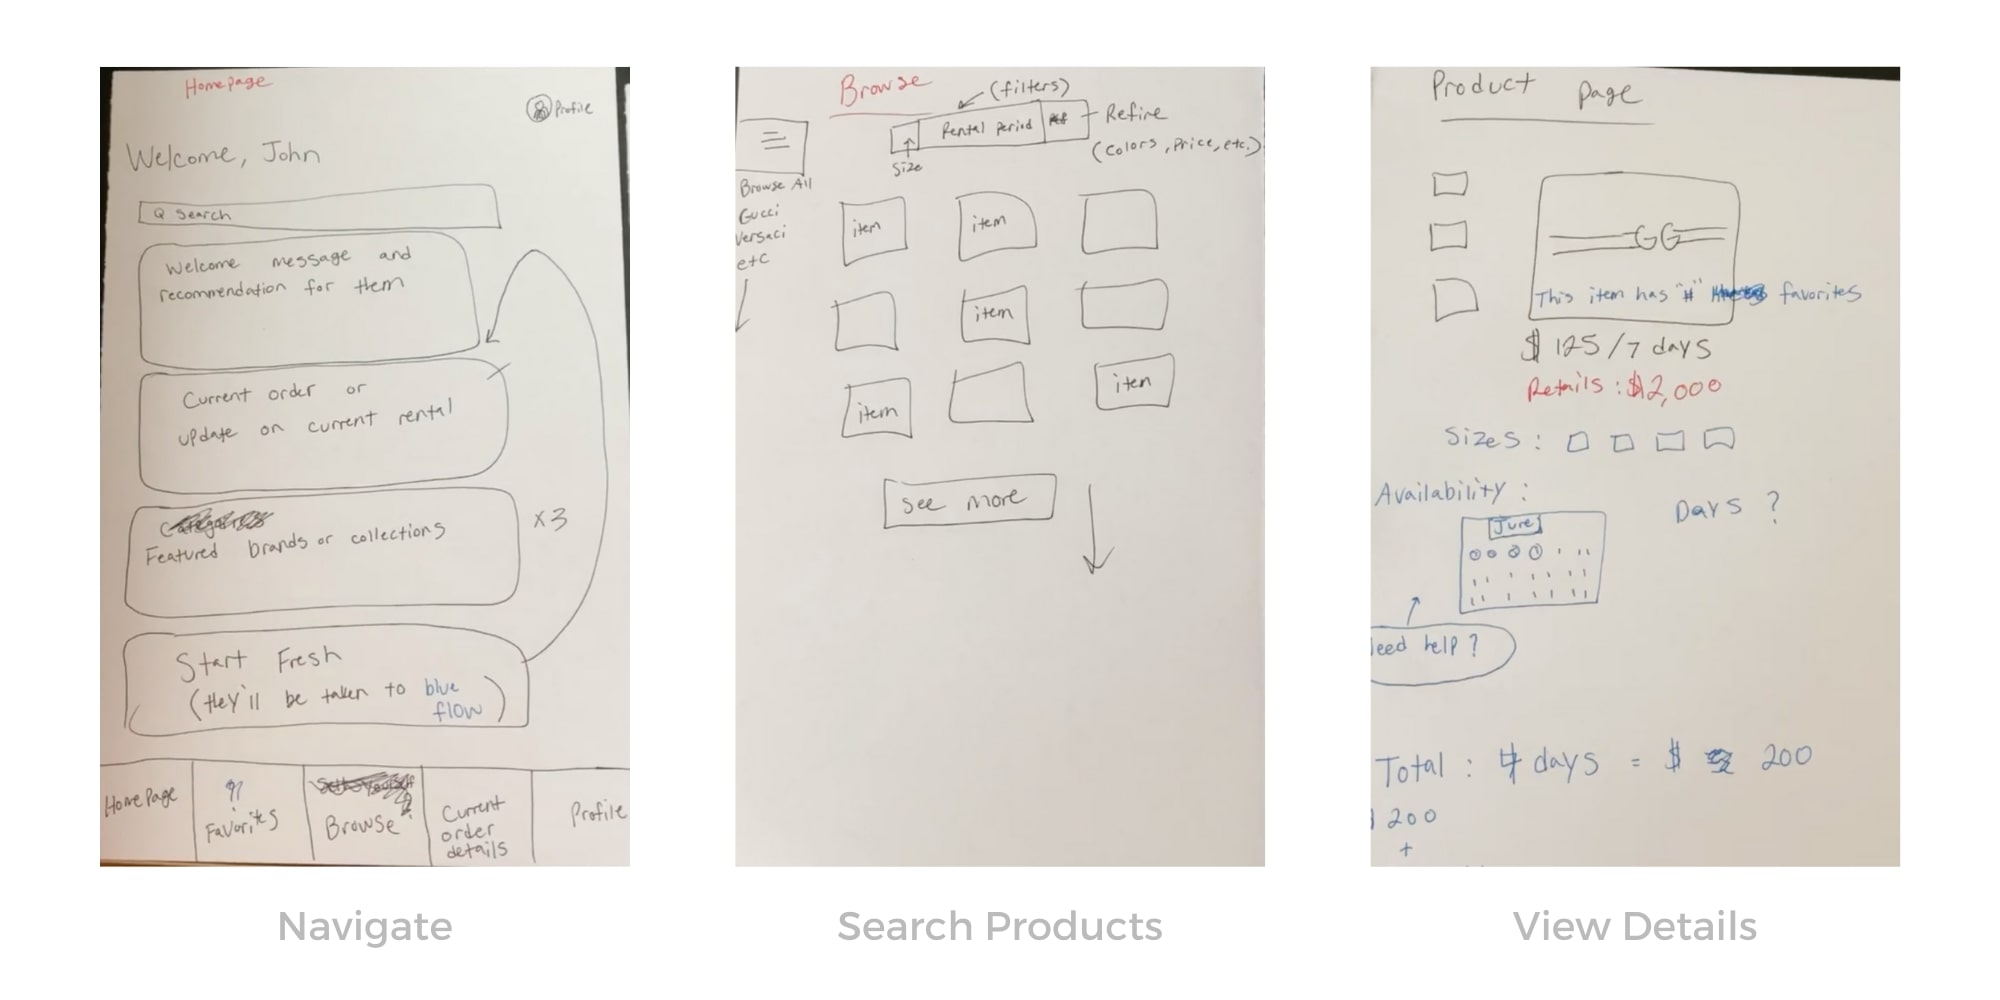 Homepage
Profile
Welcome, John
Q Search
Welcome message and
recommendation for them
Current order or
update on current rental
Categories
Featured brands or collections
x3
Start Fresh
(they'll be taken to blue
flow)
Homepage
Favorites
Browse
Current
order
details
Profile
Navigate
Browse
(filters)
Rental period
Refine
(colors, price, etc.)
Size
Browse All
Gucci
Versaci
etc
item
item
item
item
item
See more
Search Products
Product page
GG
This item has "#" favorites
$ 125/7 days
Retails: $2,000
Sizes:
Availability:
Days?
June
eed help?
Total: 4 days = $ 200
200
+
View Details